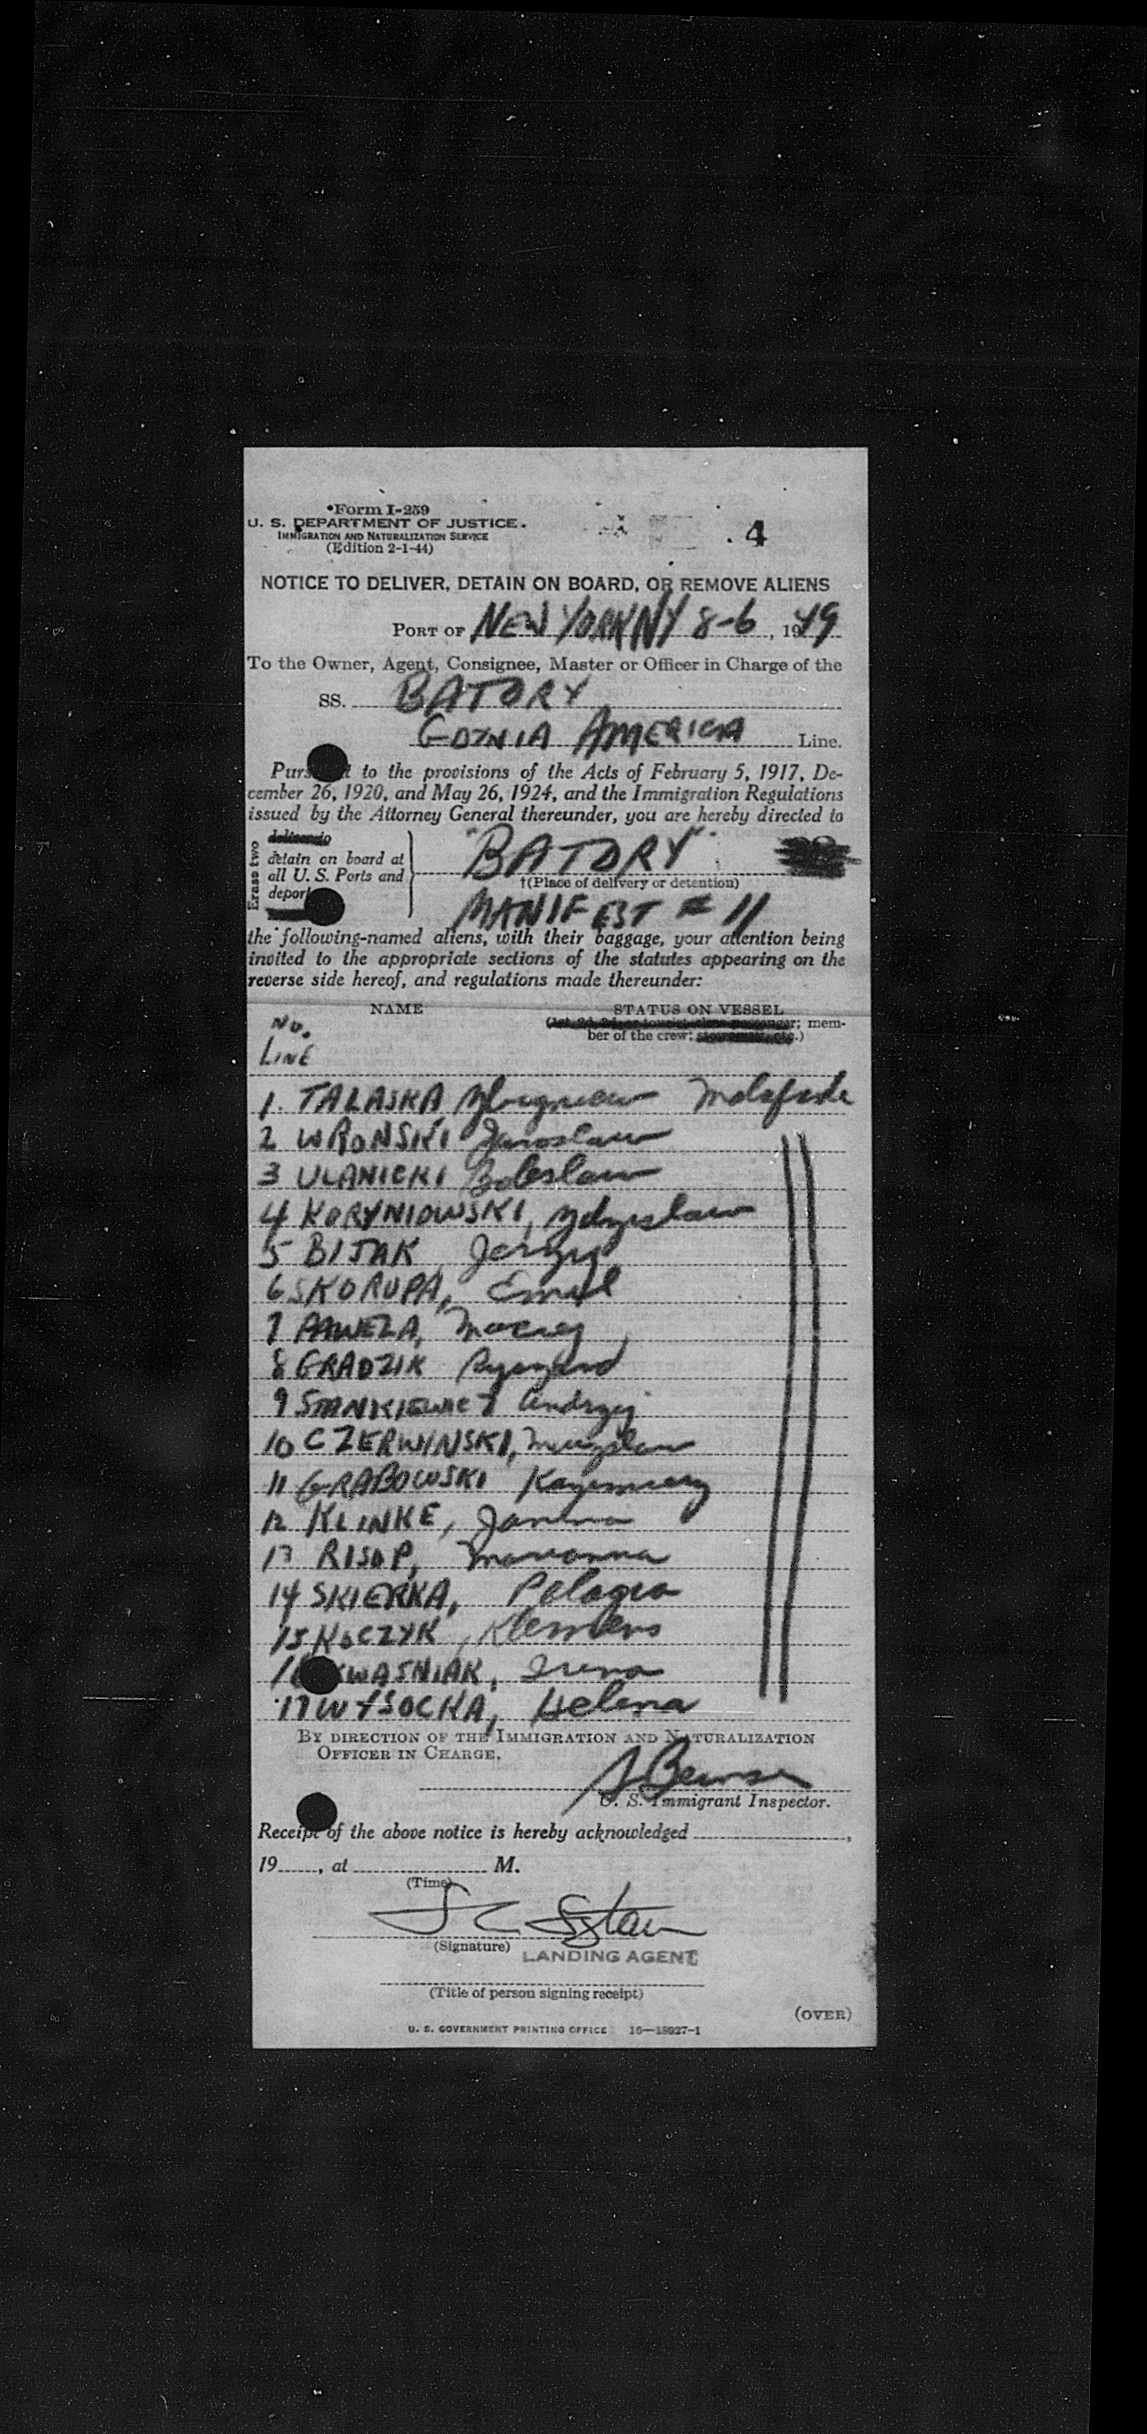 Form I-259
U. S. DEPARTMENT OF JUSTICE.
IMMIGRATION AND NATURALIZATION SERVICE
(Edition 2-1-44)
4
NOTICE TO DELIVER, DETAIN ON BOARD, OR REMOVE ALIENS
PORT OF NEW YORK NY 8-6, 1949
To the Owner, Agent, Consignee, Master or Officer in Charge of the
SS. BATORY
GDYNIA AMERICA Line.
to the provisions of the Acts of February 5, 1917, De-
cember 26, 1920, and May 26, 1924, and the Immigration Regulations
issued by the Attorney General thereunder, you are hereby directed to
Erase two
detain on board at
all U. S. Ports and
deport
"BATORY"
†(Place of delivery or detention)
MANIFEST # 11
the following-named aliens, with their baggage, your attention being
invited to the appropriate sections of the statutes appearing on the
reverse side hereof, and regulations made thereunder:
NAME STATUS ON VESSEL
mem-
ber of the crew;
No.
LINE
1. TALASKA Zbigniew Malafide
2 WRONSKI Jaroslaw
3 ULANICKI Boleslaw
4 KORYNIOWSKI, Zdzislaw
5 BIJAK Jerzy
6 SKORUPA, Emil
7 PAWEZA, Maciej
8 GRADZIK Ryszard
9 STANKIEWICZ Andrzej
10 CZERWINSKI,
11 GRABOWSKI Kazimierz
12 KLINKE, Janina
13 RISOP, Marianna
14 SKIERKA, Pelagia
15 KOCZYK, Klemens
16 KWASNIAK, Irena
17 WYSOCKA, Helena
BY DIRECTION OF THE IMMIGRATION AND NATURALIZATION
OFFICER IN CHARGE.
U. S. Immigrant Inspector.
Receipt of the above notice is hereby acknowledged
19____, at ____ M.
(Time)
(Signature) LANDING AGENT
(Title of person signing receipt)
(OVER)
U. S. GOVERNMENT PRINTING OFFICE 16—18027-1